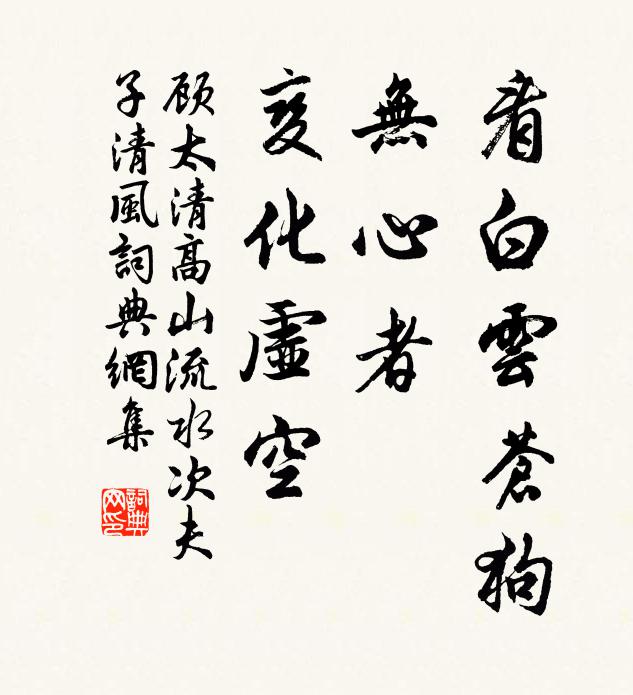 看白雲蒼狗
無心者
变化虛空
顾太清高山流水次夫
子清風詞典網集
詞典网印